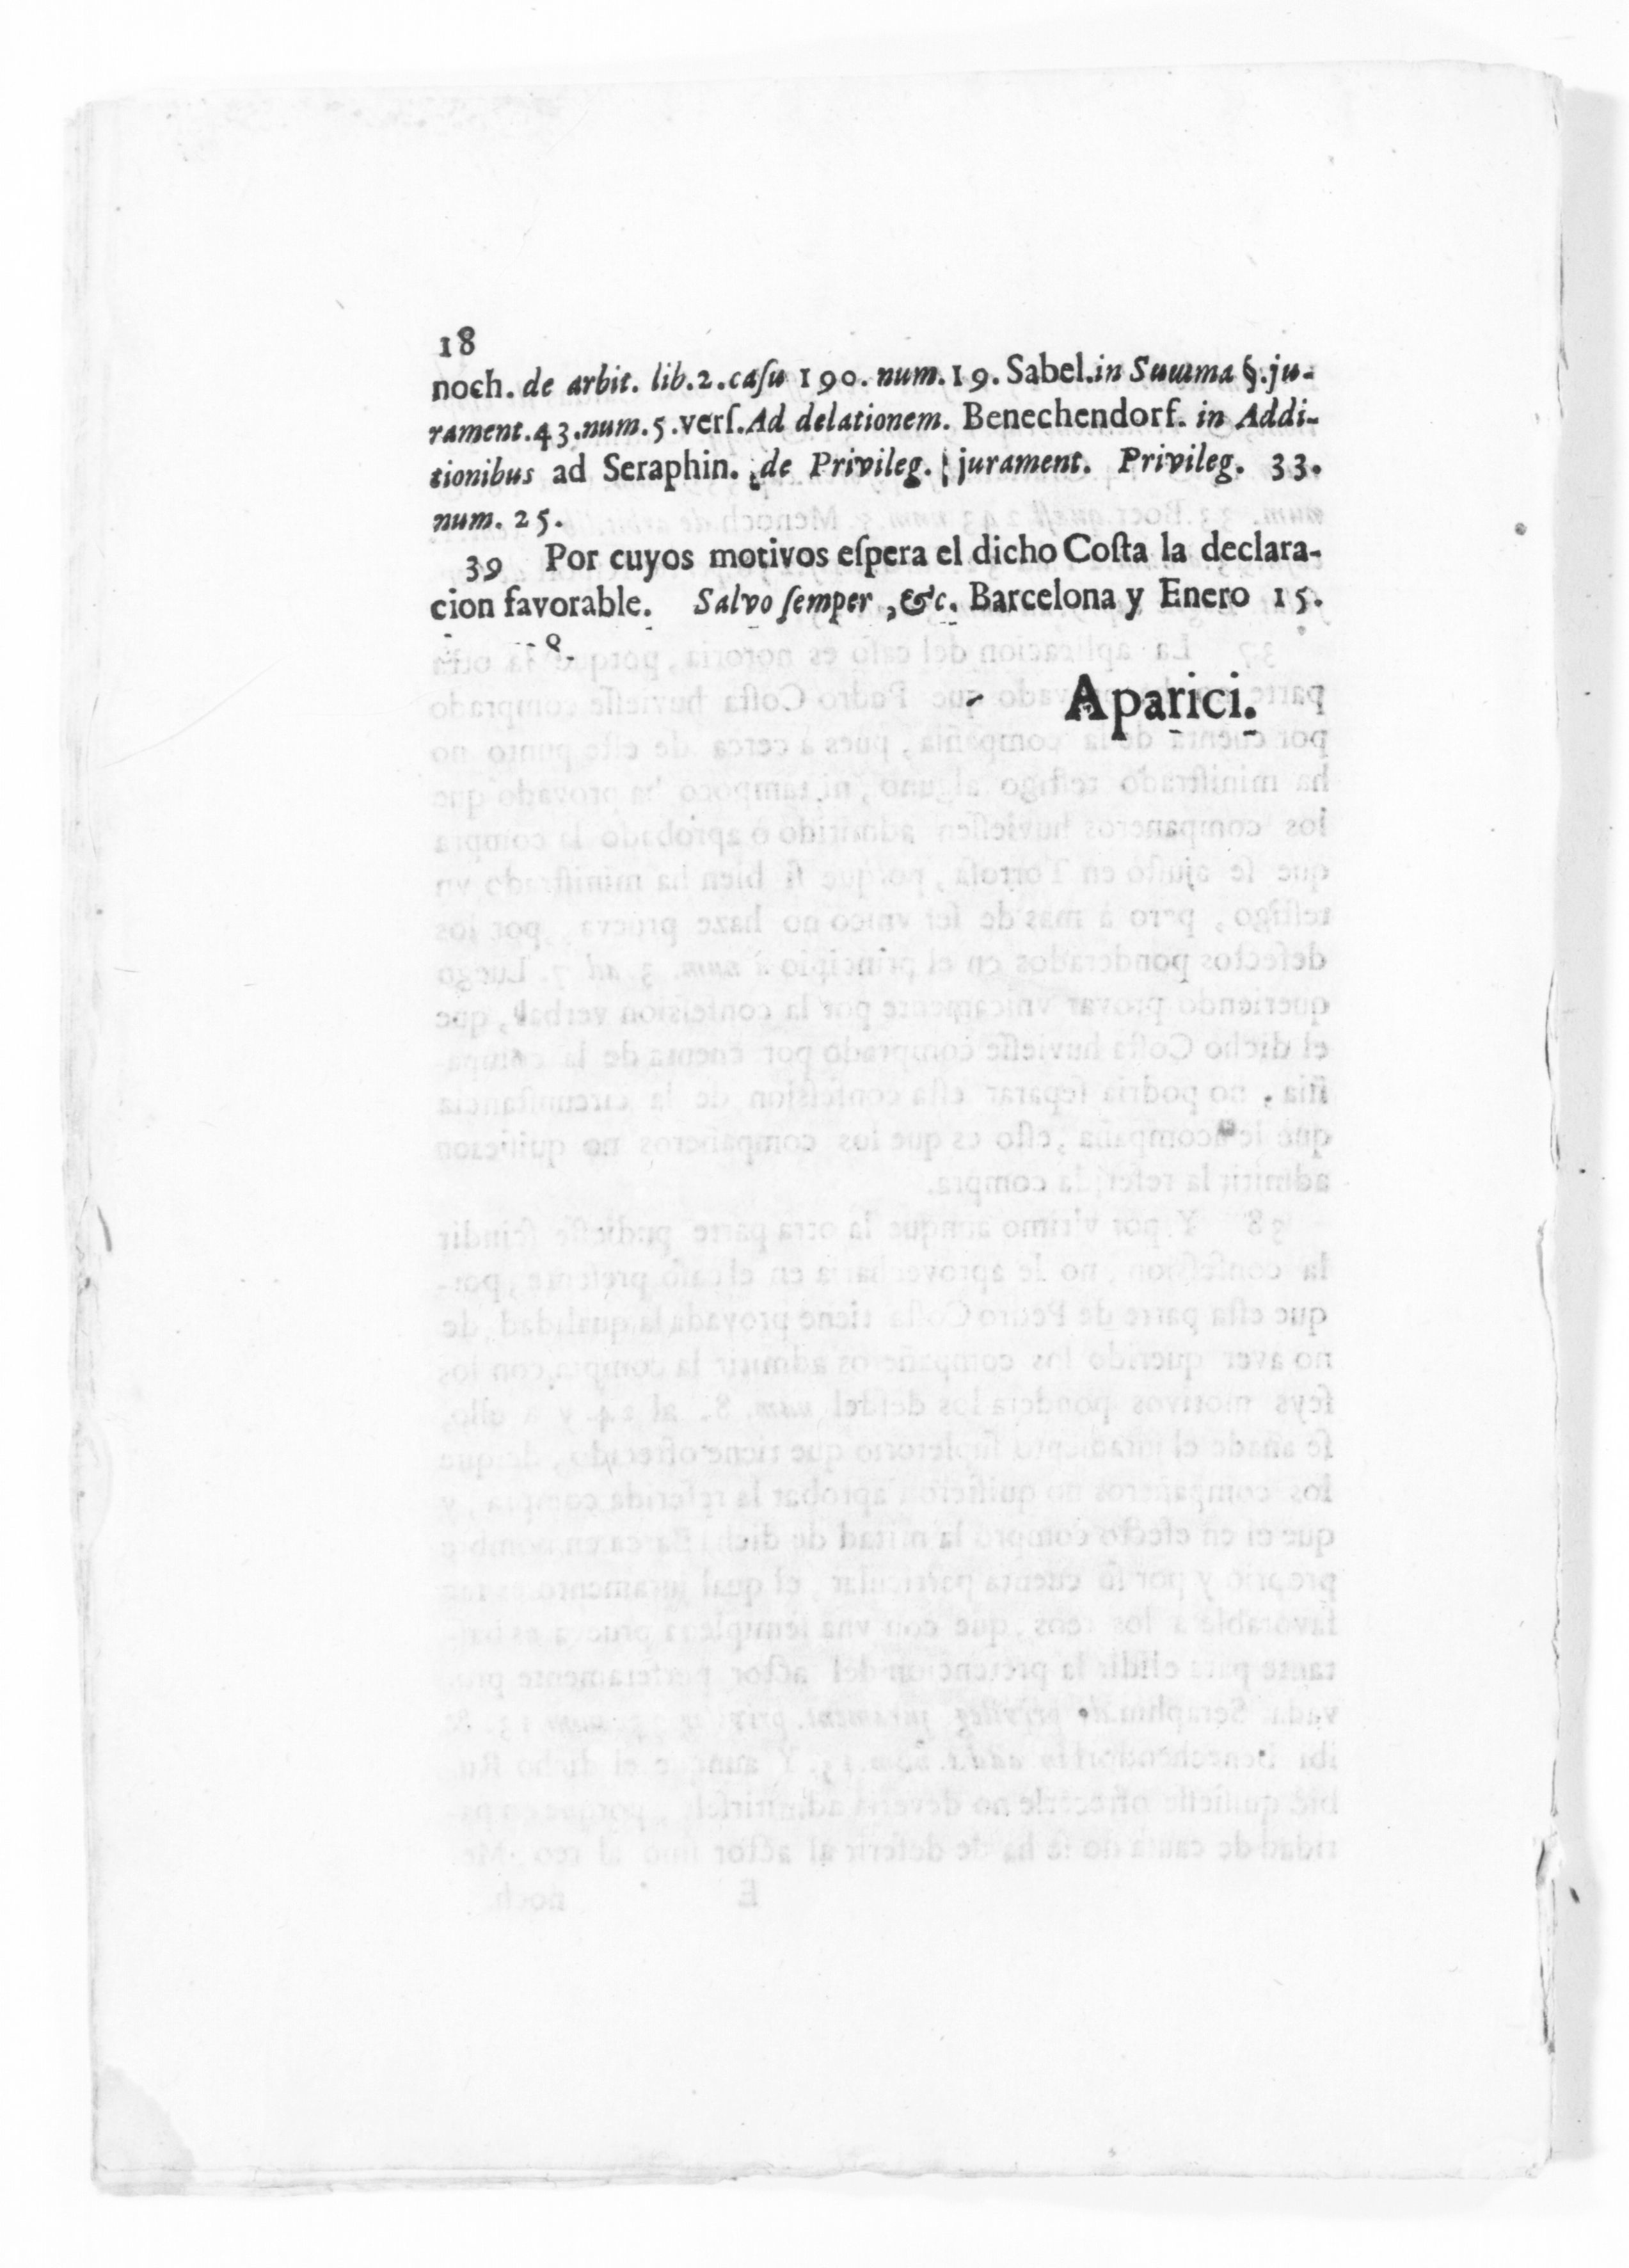 18
noch. de arbit. lib.2.caſu 190. num.19. Sabel.in Summa §.ju-
rament.43.num.5.verſ.Ad delationem. Benechendorf. in Addi-
tionibus ad Seraphin. de Privileg. jurament. Privileg. 33.
num. 25.
39 Por cuyos motivos eſpera el dicho Coſta la declara-
cion favorable. Salvo ſemper, &c. Barcelona y Enero 15.
Aparici.